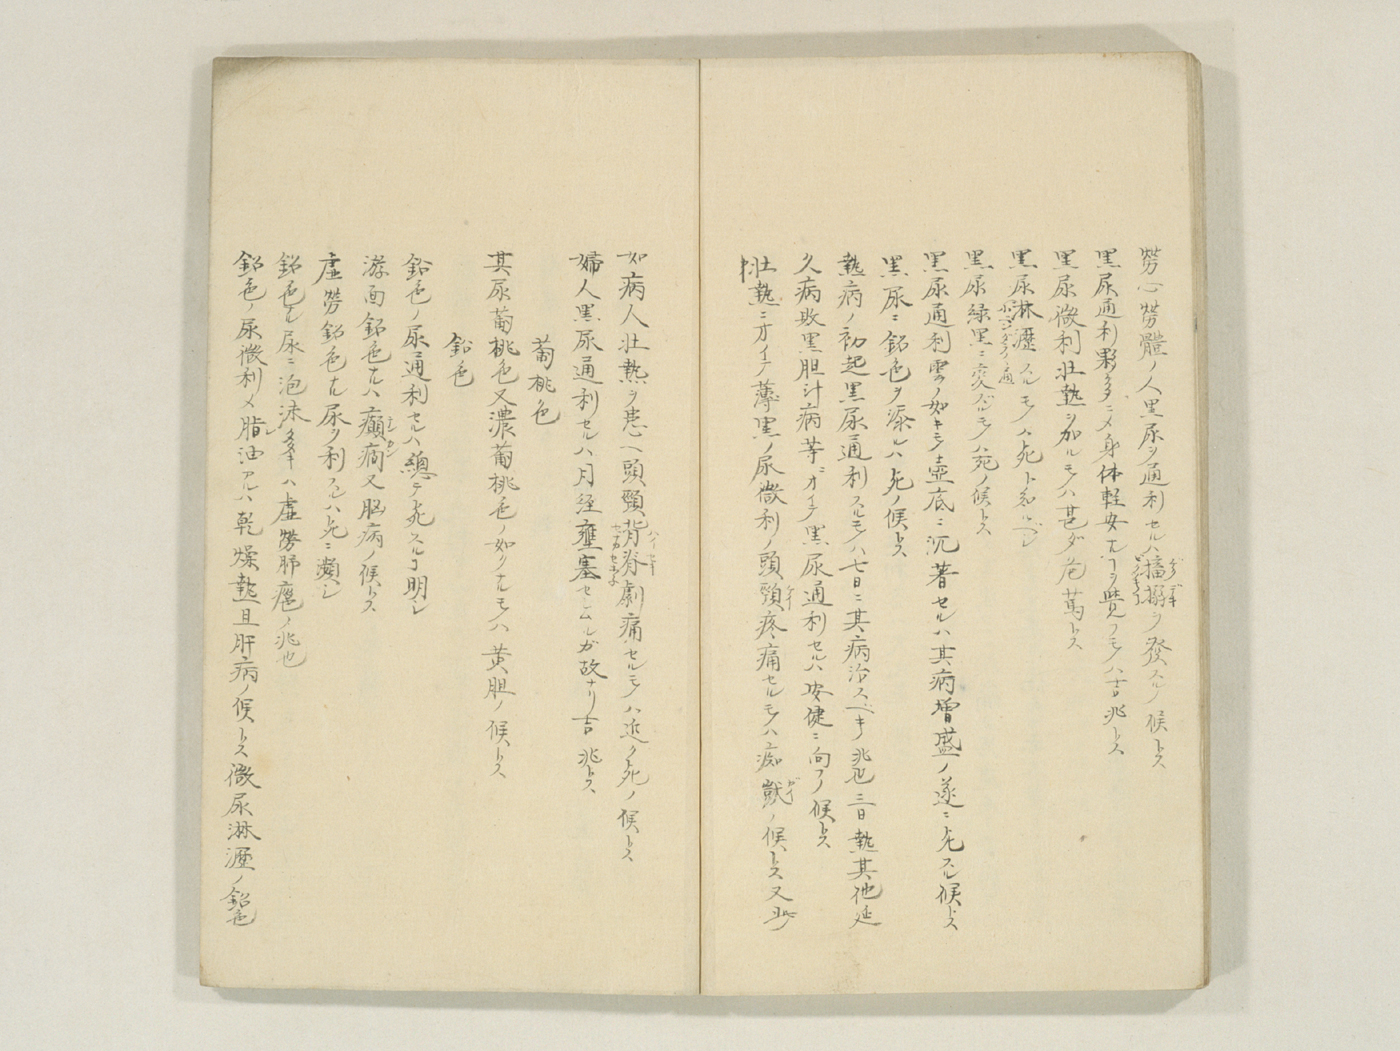 勞心勞體ノ人黒尿ヲ通利セルハ搐搦ヲ發スルノ候トス
黒尿通利夥多ニメ身体軽安ナルヿヲ覺フモノハ吉兆トス
黒尿微利壮熱ヲ加ルモノハ甚ダ危篤トス
黒尿淋瀝スルモノハ死ト知ルベシ
黒尿緑黒ニ変ズルモノハ死ノ候トス
黒尿通利雲ノ如キモノ壷底ニ沉著セルハ其病増盛ノ遂ニ死スル候トス
黒尿ニ鉛色ヲ添ルハ死ノ候トス
熱病ノ初起黒尿通利スルモノハ七日ニ其病治スベキノ兆也三日熱其他延
久病敗黒胆汁病等ニオイテ黒尿通利セルハ安健ニ向フノ候トス
壮熱ニオイテ薄黒ノ尿微利ノ頭頸疼痛セルモノハ痴獃ノ候トス又此
如病人壮熱ヲ患ヘ頭頸背脊劇痛セルモノハ近ク死ノ候トス
婦人黒尿通利セルハ月経壅塞セムルガ故ナリ吉兆トス
葡桃色
其尿葡桃色又濃葡桃色ノ如クナルモノハ黄胆ノ候トス
鉛色
鉛色ノ尿通利セルハ總テ死スルヿ明シ
滓面鉛色ナルハ癲癇又脳病ノ候トス
虚勞鉛色ナル尿ヲ利スルハ死ニ瀕シ
鉛色ナル尿ニ泡沫多キハ虚勞肺瘡ノ兆也
鉛色ノ尿微利メ脂油アルハ乾燥熱且肝病ノ候トス微尿淋瀝ノ鉛色